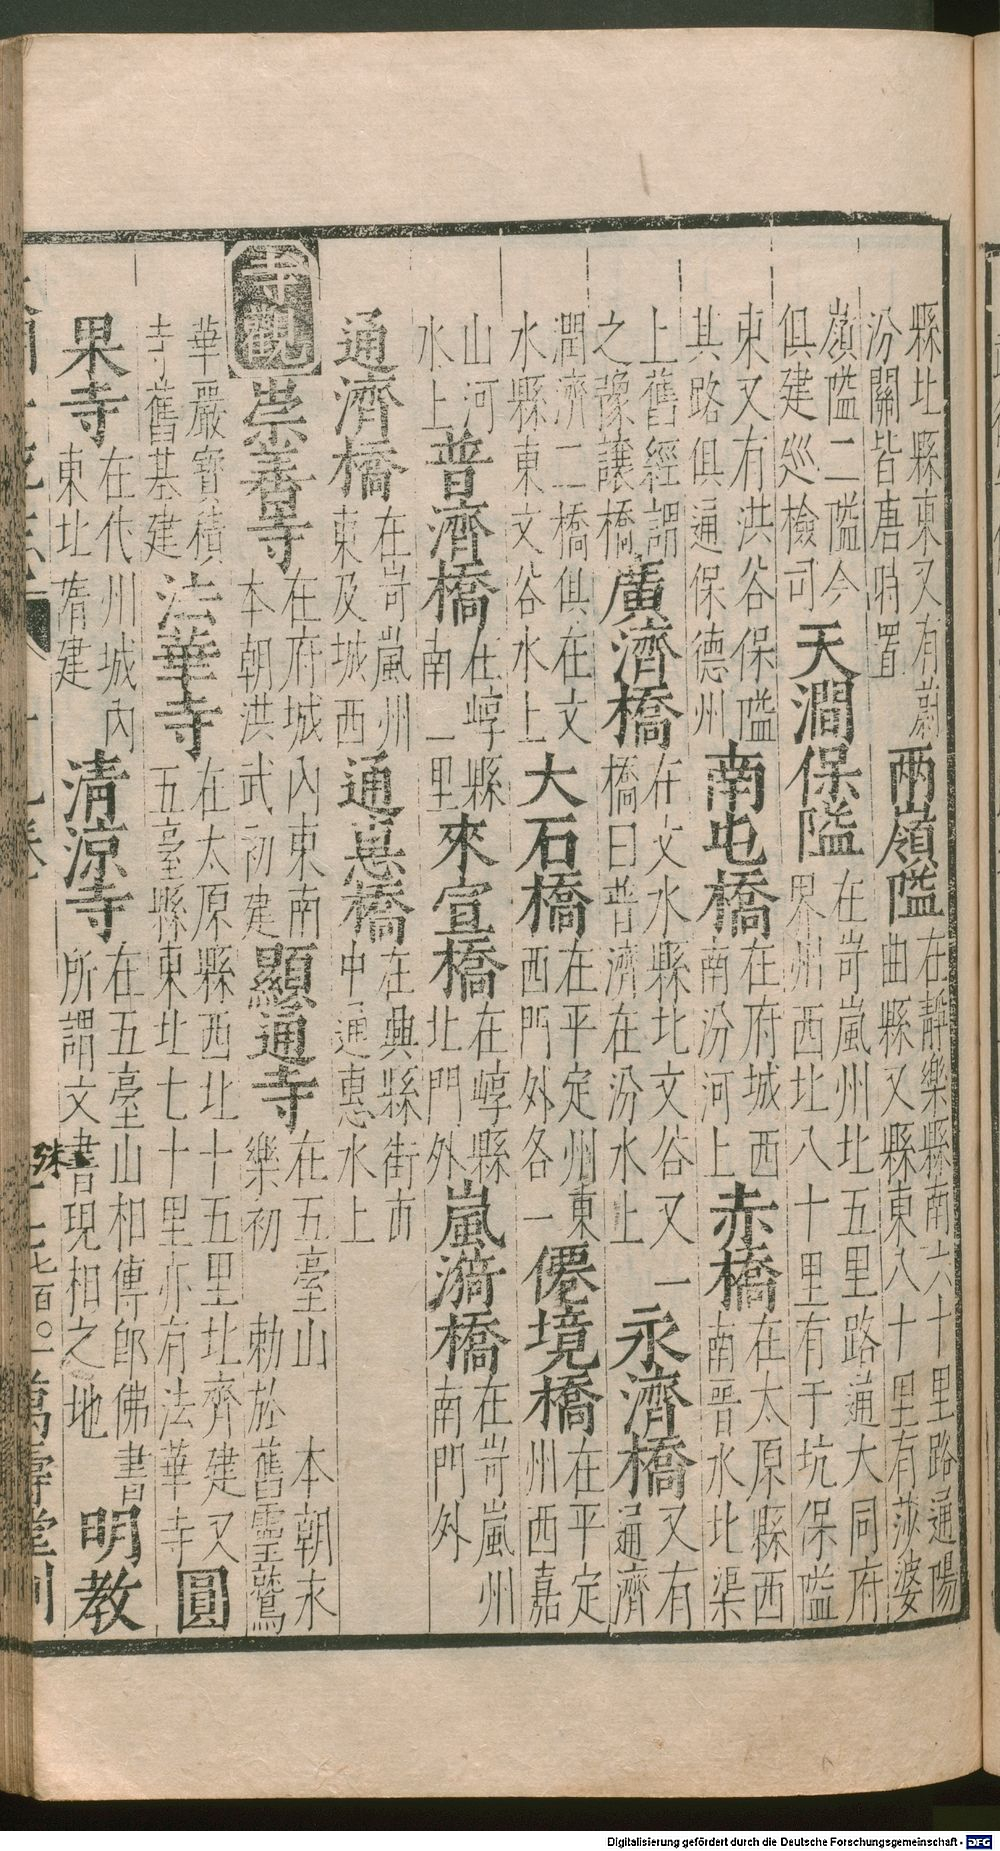 縣北縣東又有蔚汾關皆唐時置兩嶺隘在靜樂縣南六十里路通陽曲縣又縣東八十里有莎婆
嶺隘二隘今俱建巡檢司天澗保隘在岢嵐州北五里路通大同府界州西北八十里有于坑保隘
東又有洪谷保隘其路俱通保德州南屯橋在府城西南汾河上赤橋在太原縣西南晉水北渠
上舊經謂之豫讓橋廣濟橋在文水縣北文谷又一橋曰普濟在汾水上永濟橋又有通濟
潤濟二橋俱在文水縣東文谷水上大石橋在平定州東西門外各一僊境橋在平定州西嘉
山河水上普濟橋在崞縣南一里來宣橋在崞縣北門外嵐漪橋在岢嵐州南門外
通濟橋在岢嵐州東及城西通惠橋在興縣街市中通惠水上
寺觀崇善寺在府城內東南本朝洪武初建顯通寺在五臺山 本朝永樂初 勅於舊靈鷲
華嚴寶積寺舊基建法華寺在太原縣西北十五里北齊建又五臺縣東北七十里亦有法華寺圓
果寺在代州城內東北隋建清涼寺在五臺山相傳卽佛書所謂文書現相之地明教
殊
萬壽堂刊
Digitalisierung gefördert durch die Deutsche Forschungsgemeinschaft - DFG